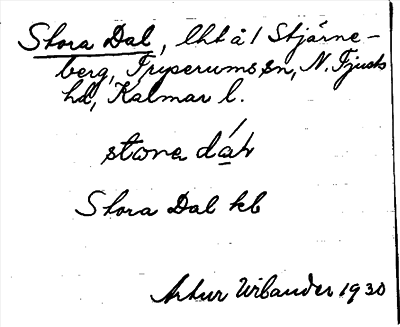 Stora Dal, lht å 1 Stjärne-
berg, Tryserums sn, N. Tjusts
hd, Kalmar l.
stora dáɫ
Stora Dal kb
Artur Urbander 1930